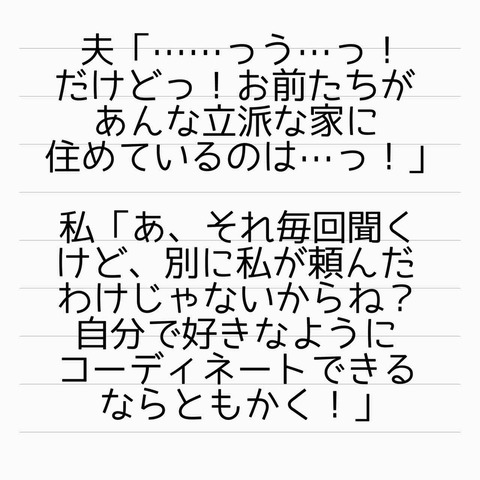 夫「……っう…っ！
だけどっ！お前たちが
あんな立派な家に
住めているのは…っ！」
私「あ、それ毎回聞く
けど、別に私が頼んだ
わけじゃないからね？
自分で好きなように
コーディネートできる
ならともかく！」